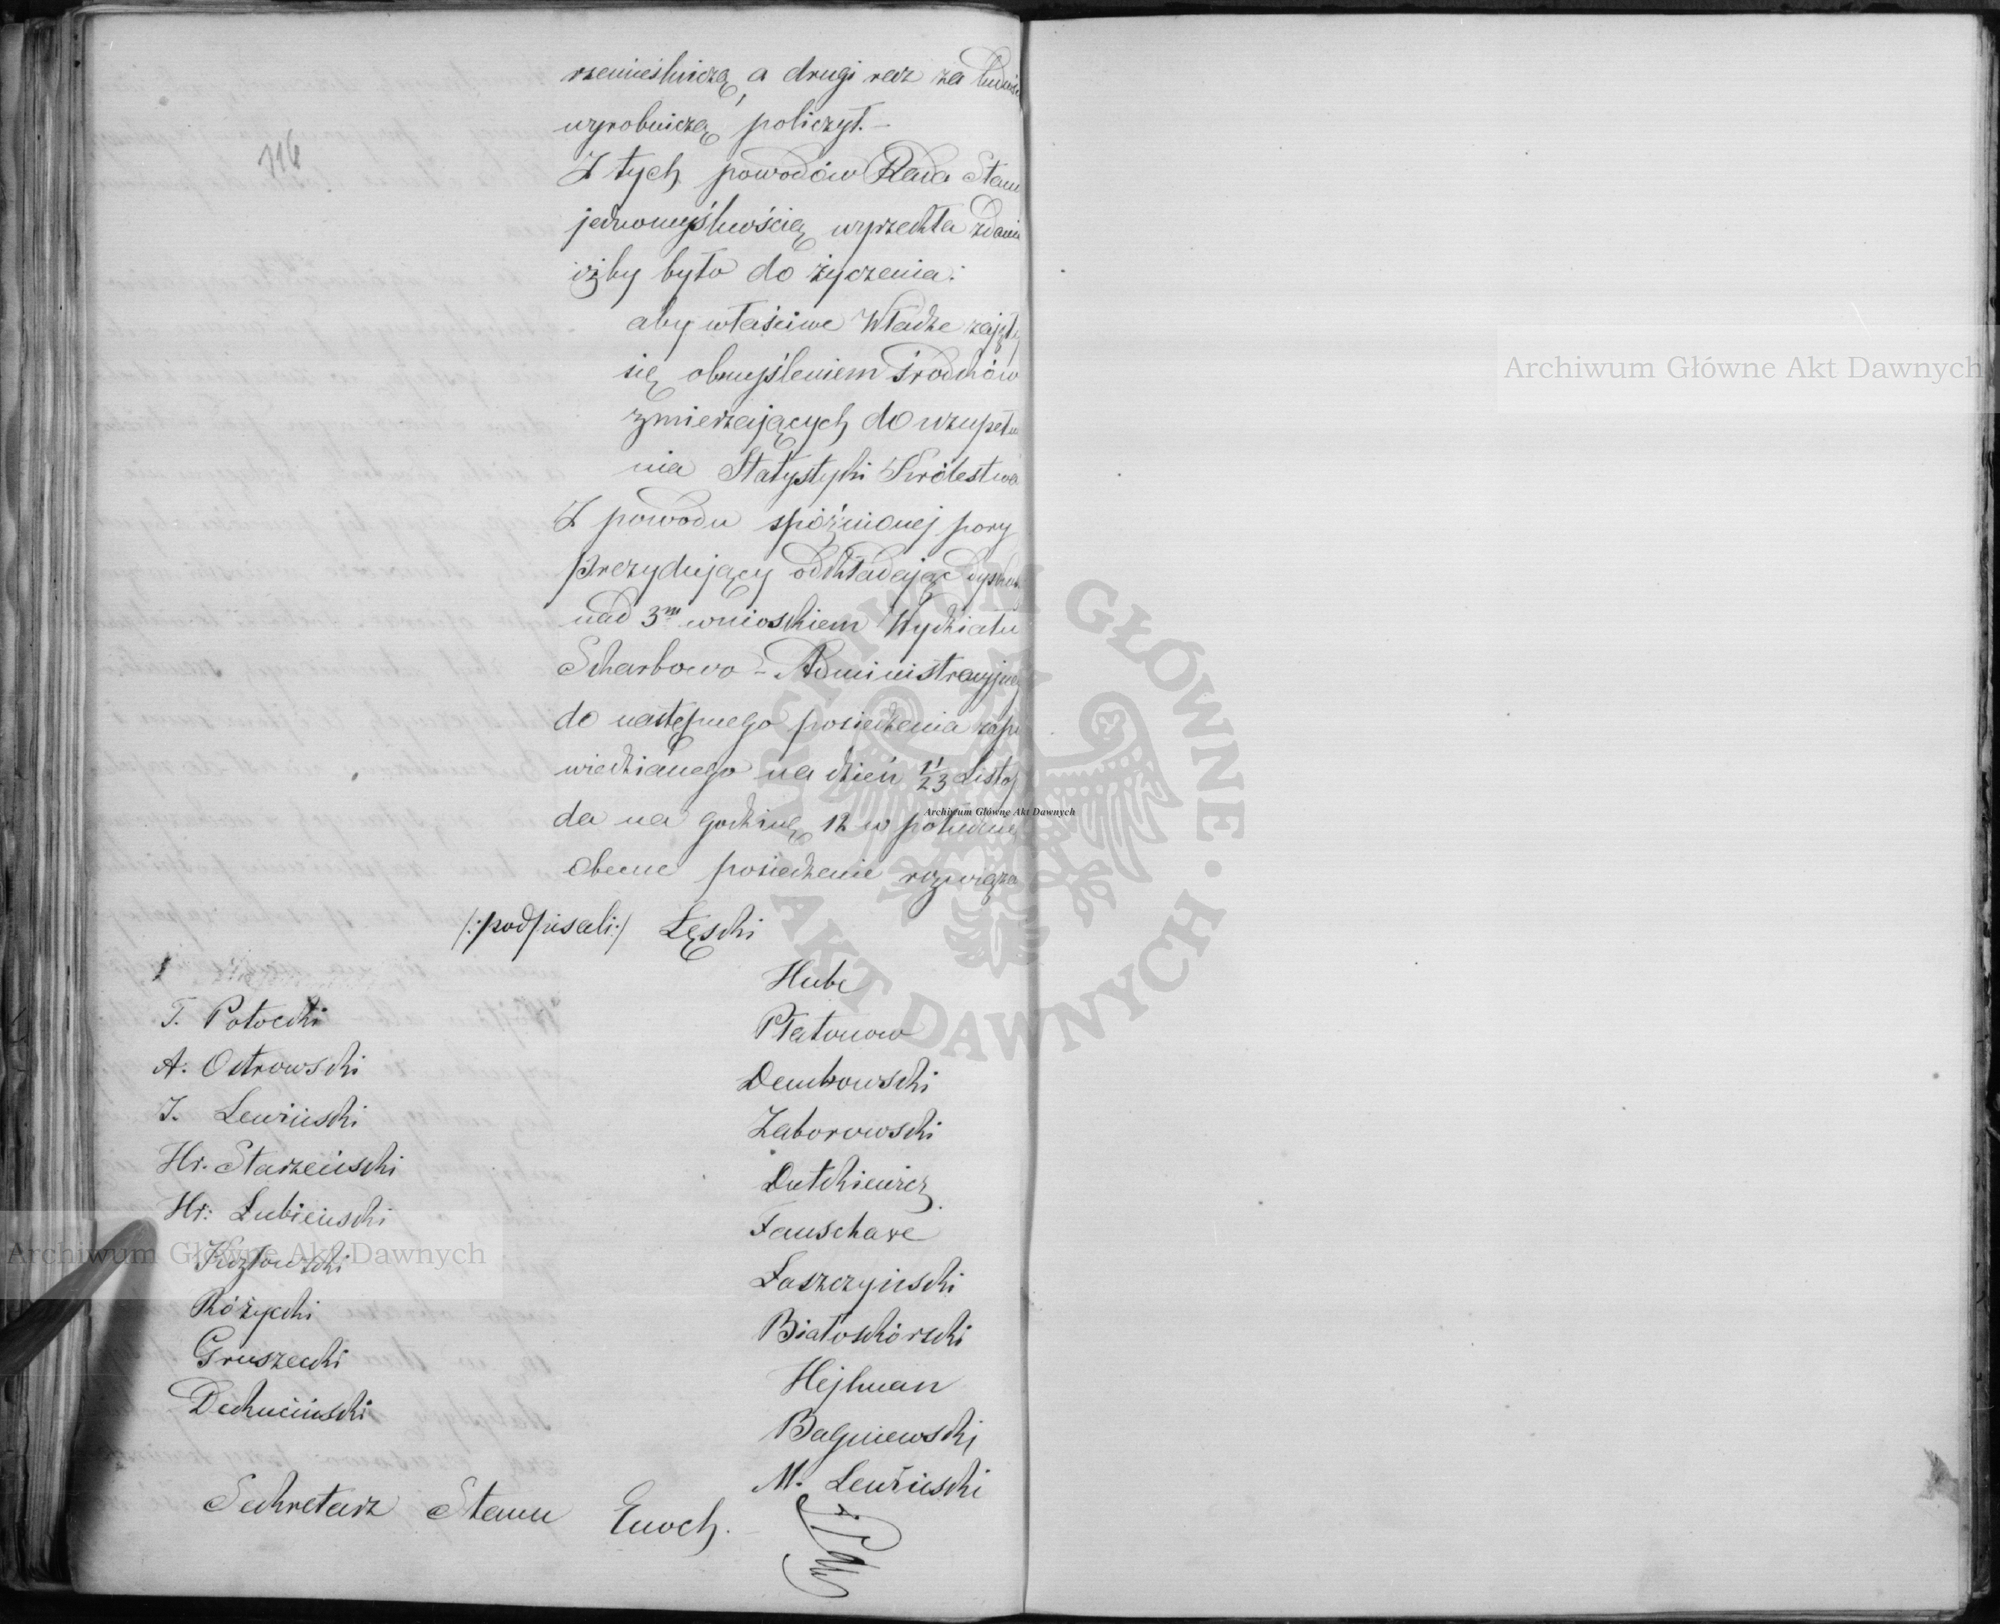 116
rzemieślniczą, a drugi raz za ludność
wyrobniczą policzył. –
Z tych powodów Rada Stanu
jednomyślnością wyrzekła zdanie
iżby było do życzenia:
aby właściwe Władze zajęły
się obmyśleniem środków
zmierzających do uzupełnie
nia Statystyki Królestwa
Z powodu spóźnionej pory
Prezydujący odkładając dysku
nad 3m wnioskiem Wydziału
Skarbowo-Administracyjnego
do następnego posiedzenia zapo
wiedzianego na dzień 11/23 Listopa
da na godzinę 12 w południe
obecne posiedzenie rozwiązał
/:podpisali:/ Łęski
Hube
Płatonow
Dembowski
Zaborowski
Dutkiewicz
Fanshave
Łaszczyński
Białoskórski
Hejlman
Bagniewski
M. Lewiński
T. Potocki
A. Ostrowski
J. Lewiński
Hr. Starzeński
Hr: Łubieński
Kozłowski
Różycki
Gruszecki
Dekuciński
Sekretarz Stanu Enoch.
Archiwum Główne Akt Dawnych
Archiwum Główne Akt Dawnych
Archiwum Główne Akt Dawnych
ARCHIWUM GŁÓWNE · AKT DAWNYCH ·